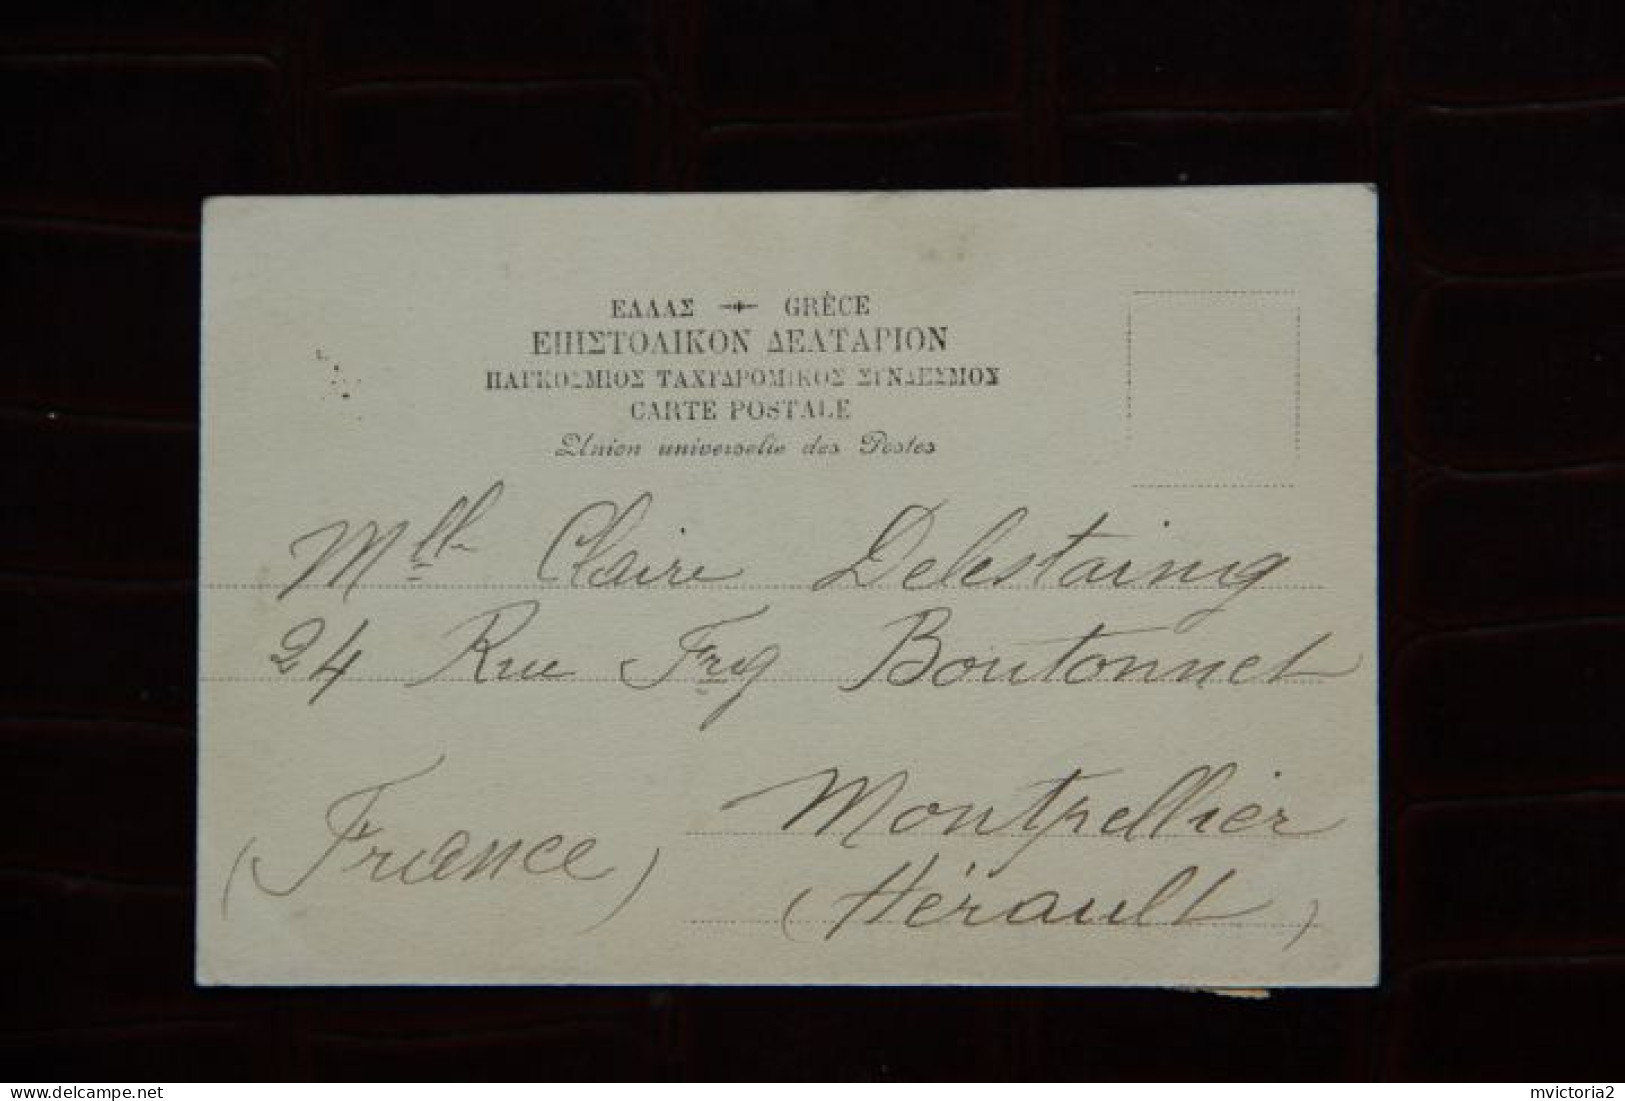 ΕΛΛΑΣ GRÈCE
ΕΠΙΣΤΟΛΙΚΟΝ ΔΕΛΤΑΡΙΟΝ
ΠΑΓΚΟΣΜΙΟΣ ΤΑΧΥΔΡΟΜΙΚΟΣ ΣΥΝΔΕΣΜΟΣ
CARTE POSTALE
Union universelle des Postes
Mlle Claire Delestaing
24 Rue Frg Boutonnet
Montpellier
(France)
(Hérault)
delcampe.net
mvictoria2